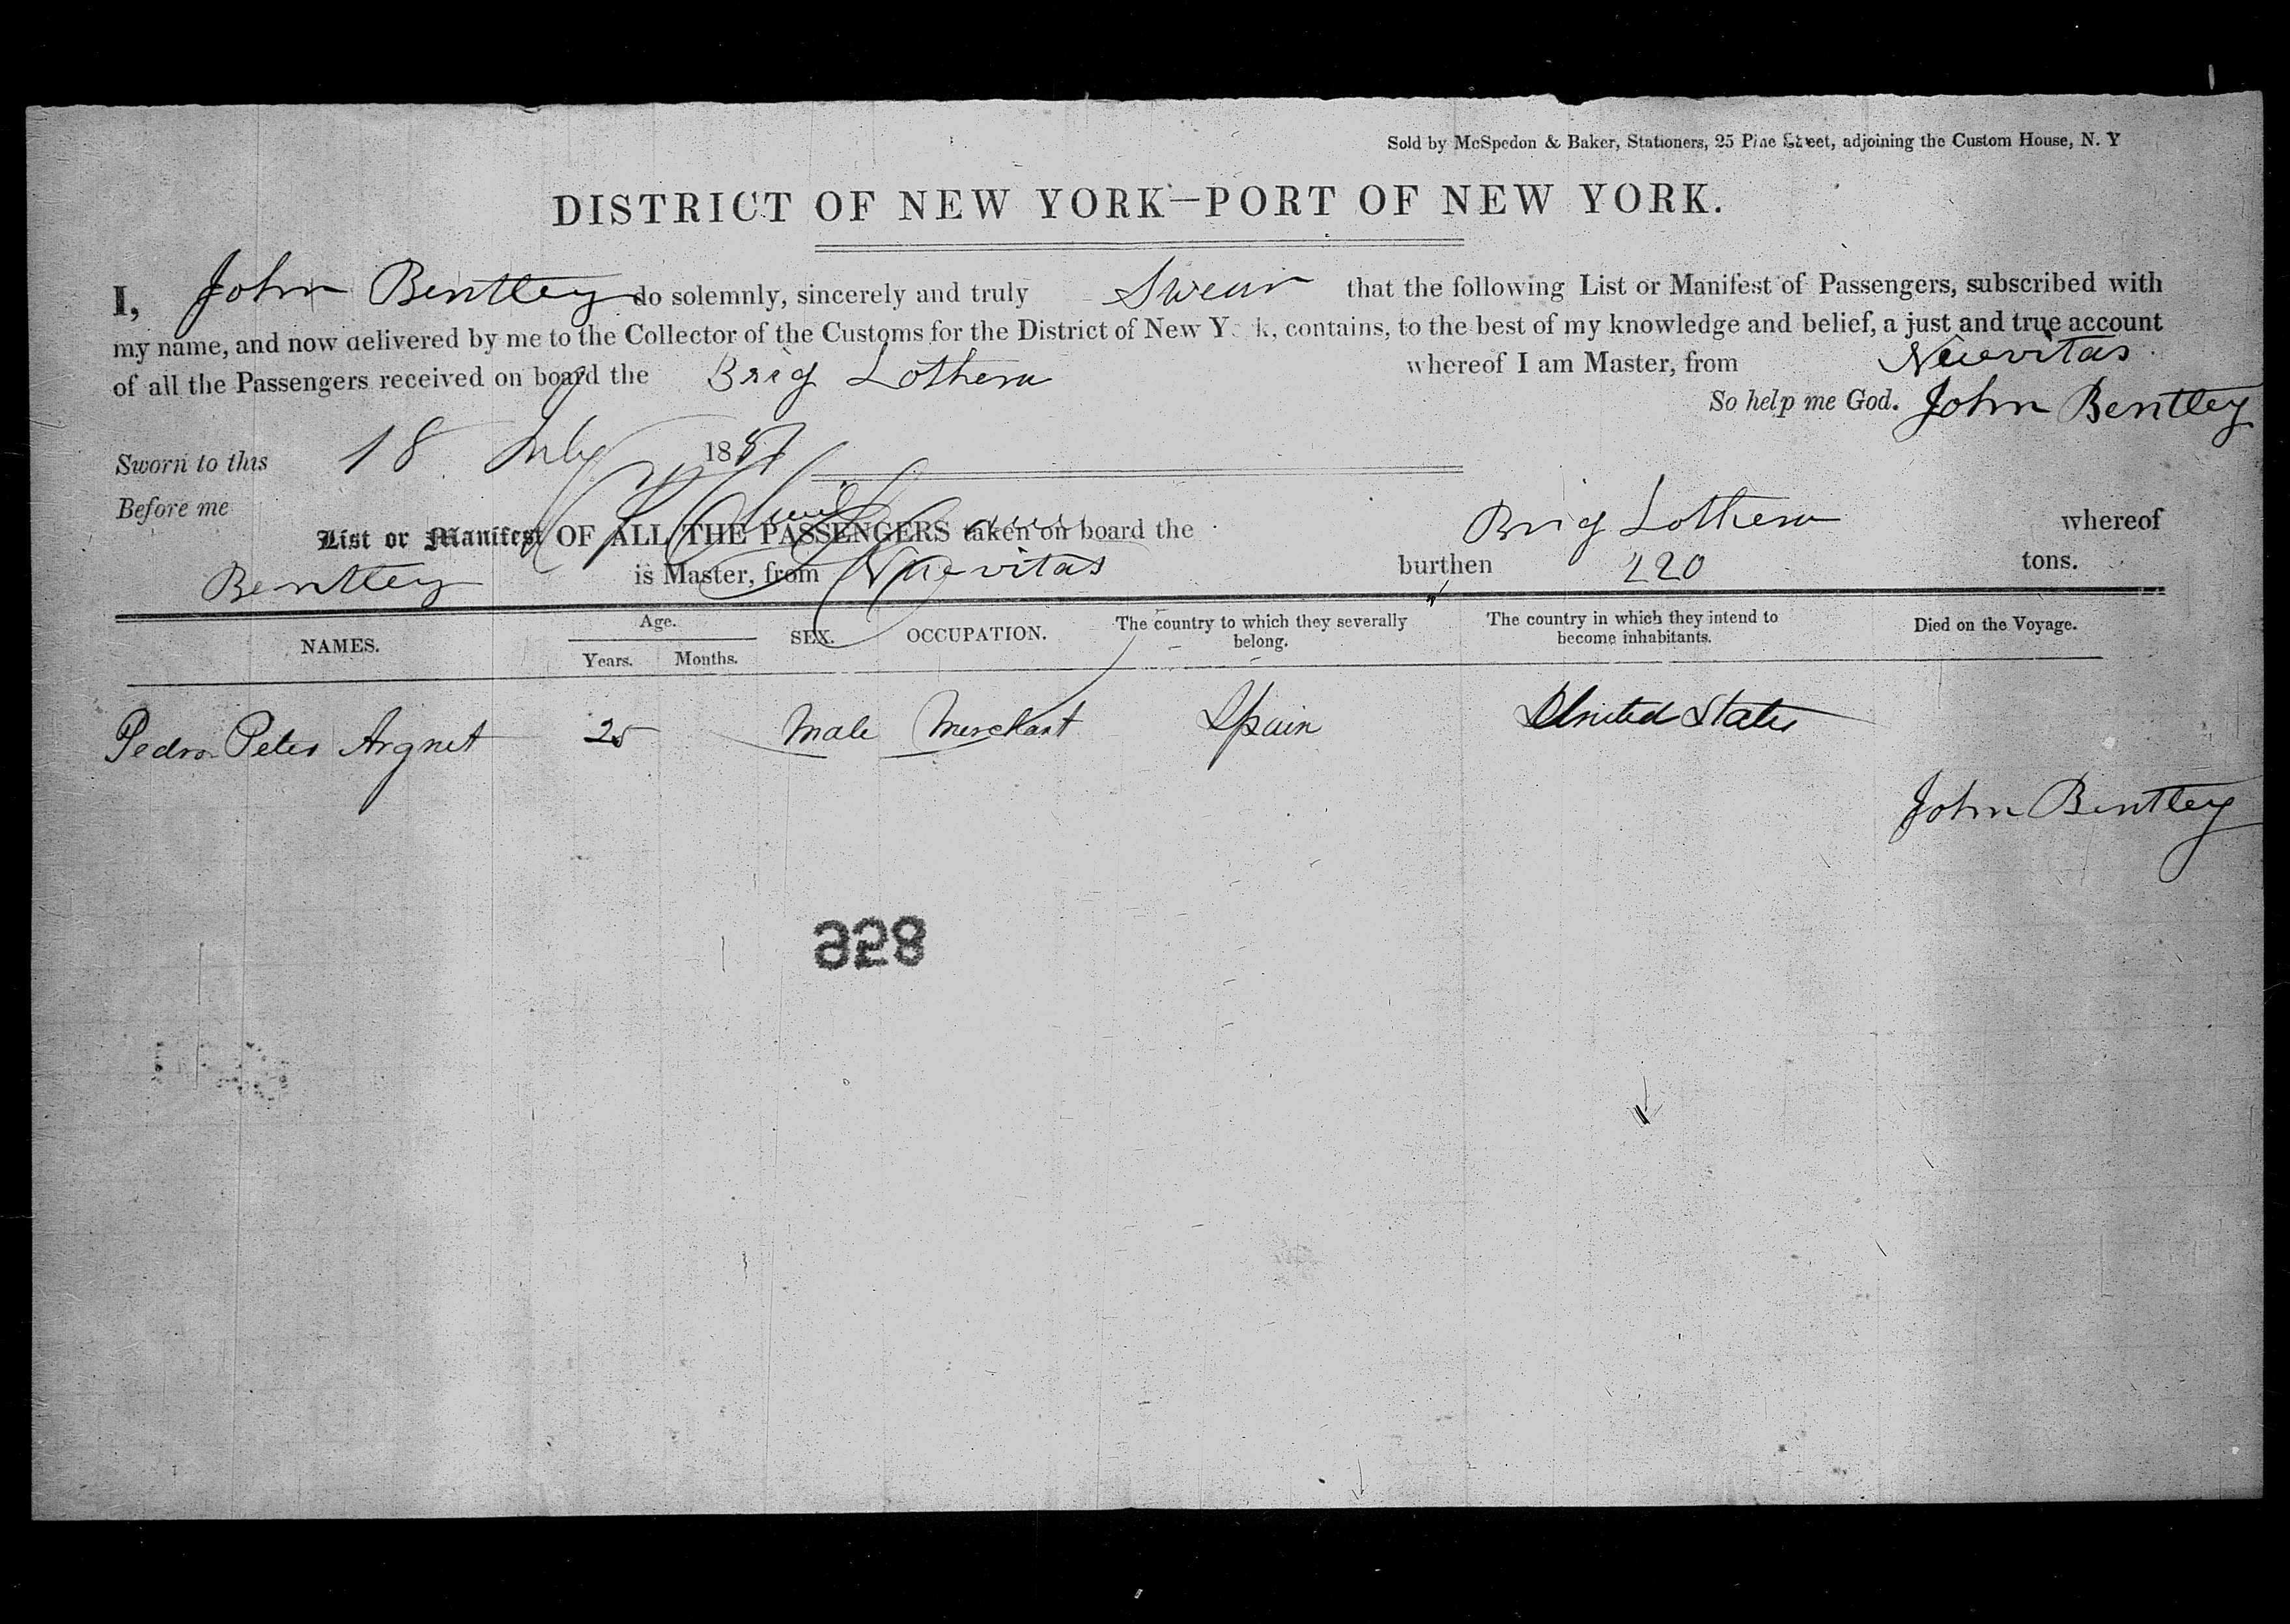 Sold by McSpedon & Baker, Stationers, 25 Pine Street, adjoining the Custom House, N. Y
DISTRICT OF NEW YORK—PORT OF NEW YORK.
I, John Bentley do solemnly, sincerely and truly Swear that the following List or Manifest of Passengers, subscribed with
my name, and now delivered by me to the Collector of the Customs for the District of New Y k, contains, to the best of my knowledge and belief, a just and true account
of all the Passengers received on board the Brig Lothern whereof I am Master, from Nuevitas
So help me God. John Bentley
Sworn to this 18 July 18
Before me
List or Manifest OF ALL THE PASSENGERS taken on board the Brig Lothern whereof
Bentley is Master, from Nuevitas burthen 220 tons.
NAMES. Age. Years. Months. SEX. OCCUPATION. The country to which they severally belong. The country in which they intend to become inhabitants. Died on the Voyage.
Pedro Peter Argnet 25 Male Merchant Spain United States
John Bentley
828